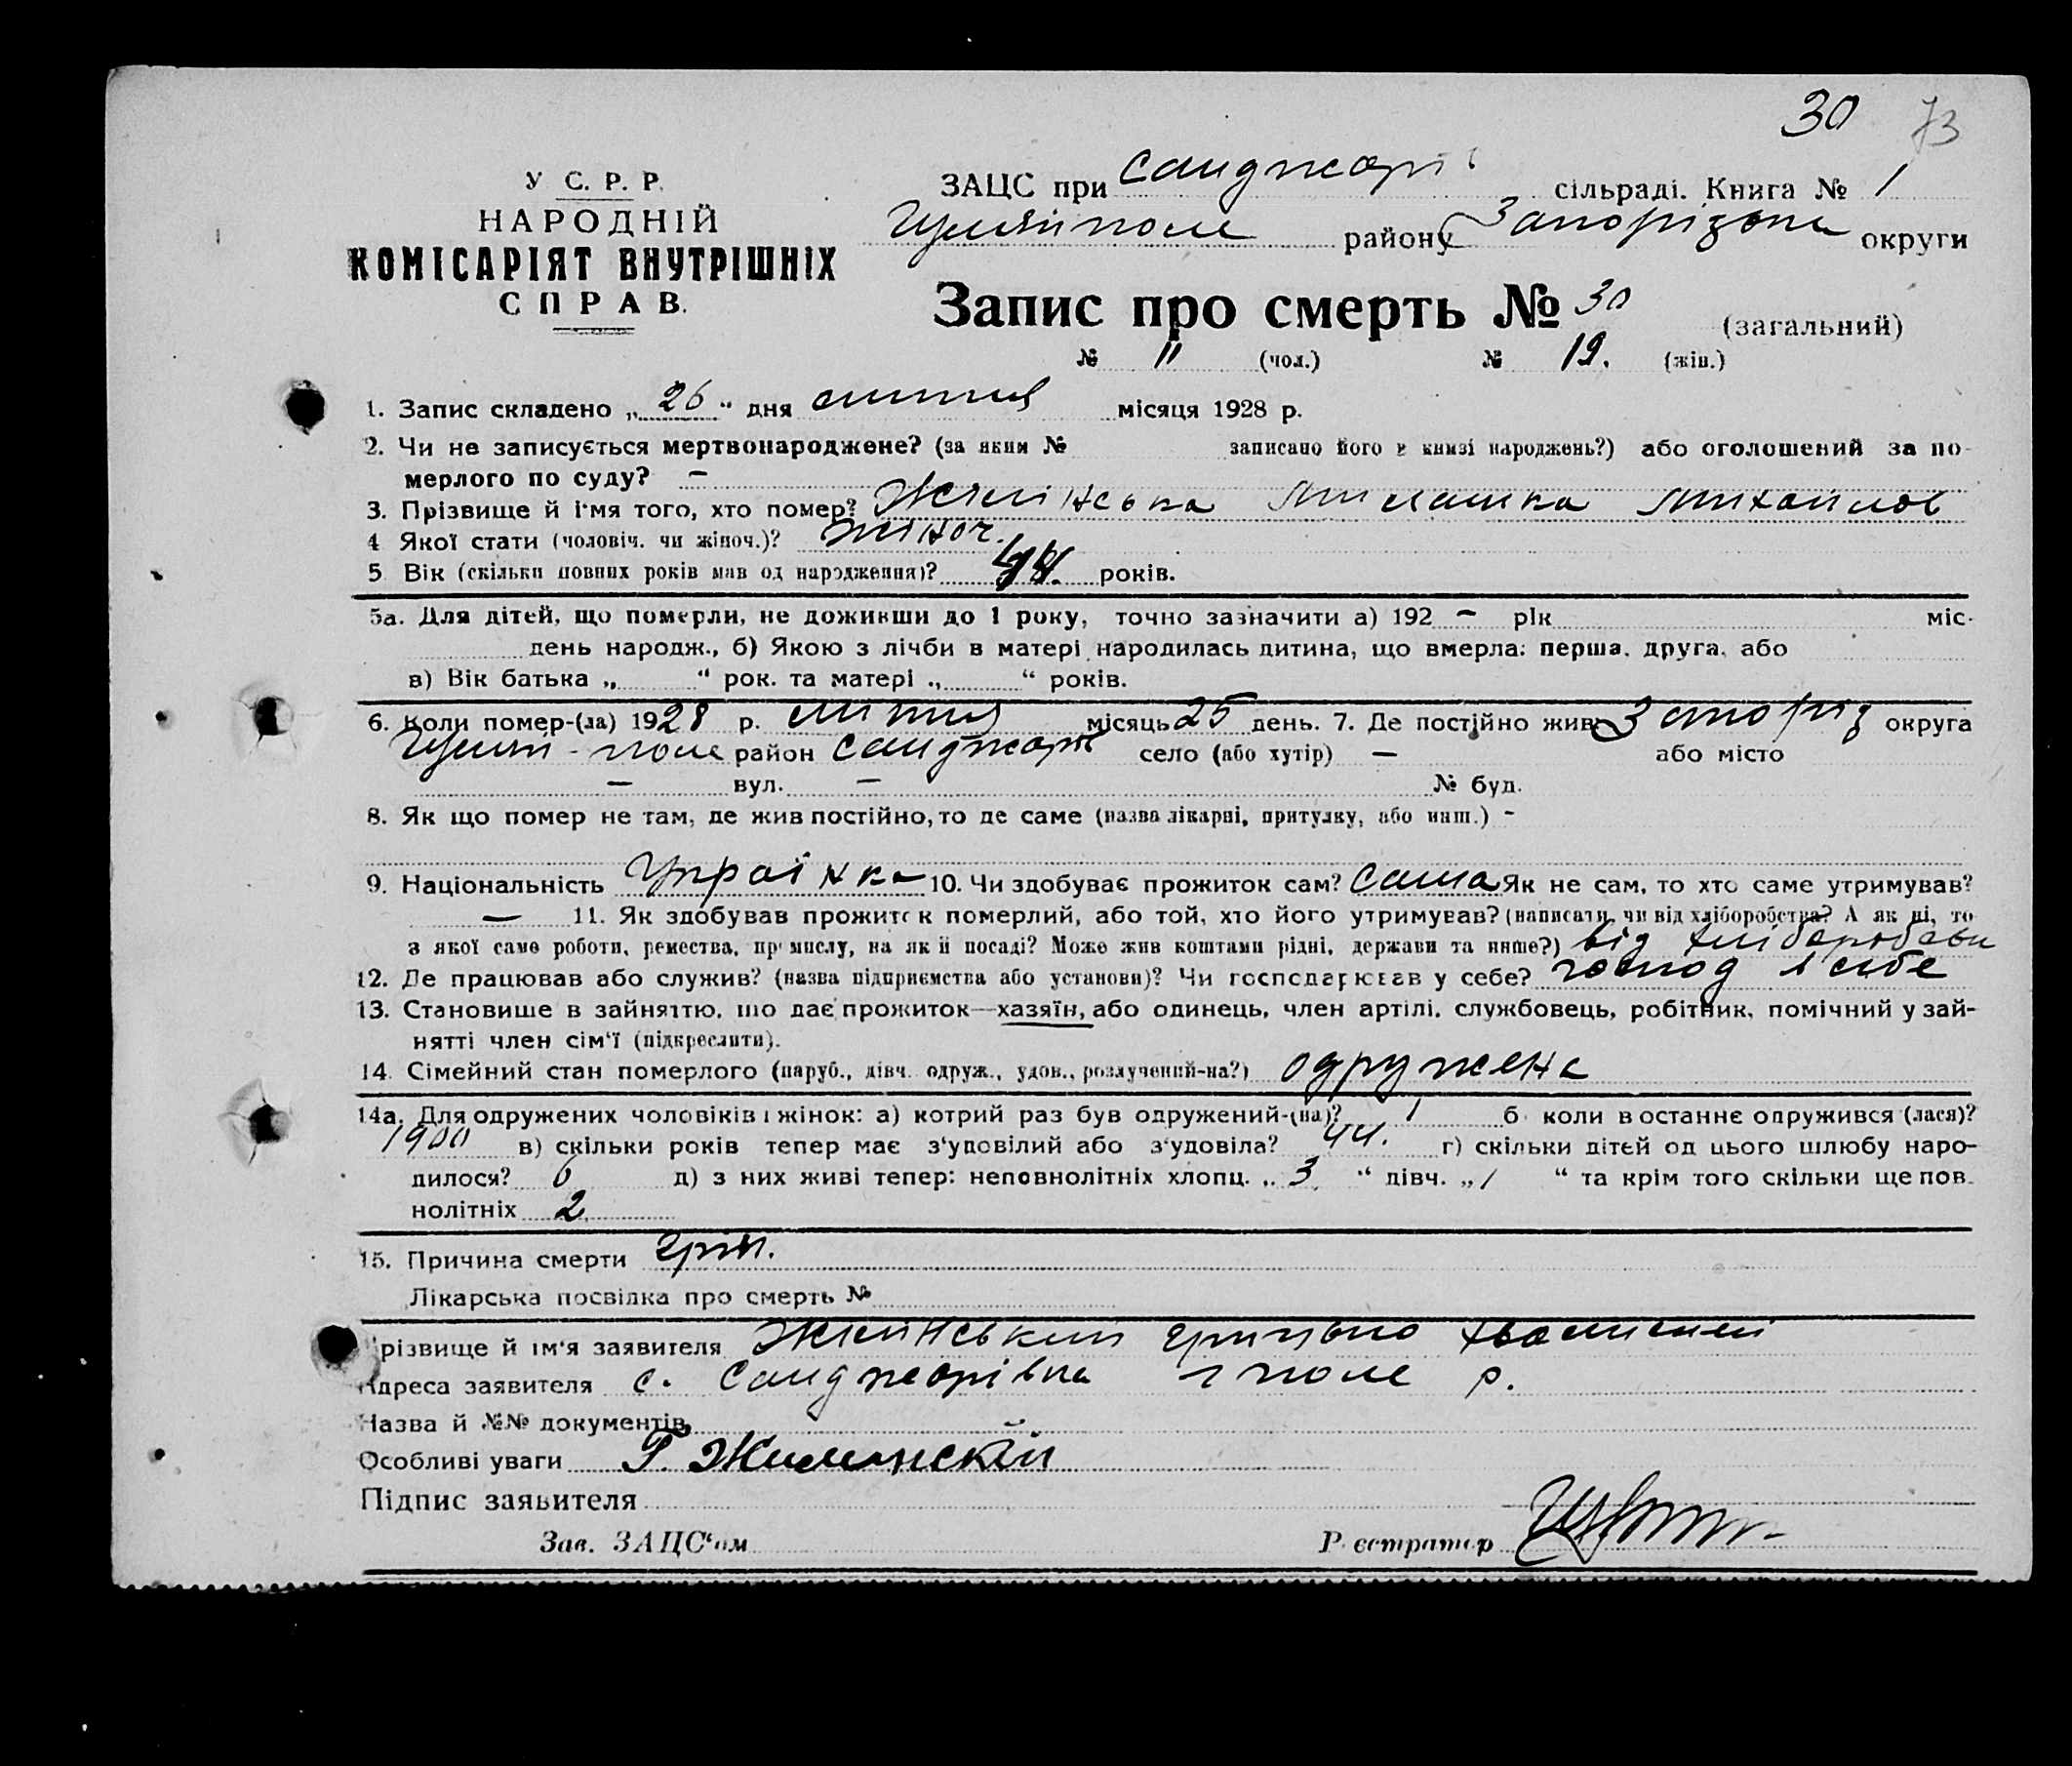 30 73
У С. Р. Р.
НАРОДНІЙ
КОМІСАРІЯТ ВНУТРІШНІХ
СПРАВ.
ЗАЦС при Санджарі сільраді. Книга № 1
Гуляйполе району Запорізька округи
Запис про смерть № 30 (загальний)
№ 11 (чол.) № 19. (жін.)
1. Запис складено „ 26 “ дня липня місяця 1928 р.
2. Чи не записується мертвонароджене? (за яким № записано його в книзі народжень?) або оголошений за по-
мерлого по суду? –
3. Прізвище й ім'я того, хто помер? Михайлов
4 Якої стати (чоловіч. чи жіноч.)? жіноч.
5 Вік (скільки повних років мав од народження)? 44. років.
5а. Для дітей, що померли, не доживши до 1 року, точно зазначити а) 192 – рік міс.
день народж., б) Якою з лічби в матері народилась дитина, що вмерла: перша, друга, або
в) Вік батька „ “ рок. та матері „ “ років.
6. Коли помер-(ла) 1928 р. липня місяць 25 день. 7. Де постійно жив Запоріз округа
Гуляй-поле район Санджарі село (або хутір) – або місто
– вул. – № буд.
8. Як що помер не там, де жив постійно, то де саме (назва лікарні, притулку, або инш.) –
9. Національність Украінка 10. Чи здобуває прожиток сам? Сама Як не сам, то хто саме утримував?
– 11. Як здобував прожиток померлий, або той, хто його утримував? (написати, чи від хліборобства? А як ні, то
з якої саме роботи, ремества, промислу, на якій посаді? Може жив коштами рідні, держави та инше?) від
12. Де працював або служив? (назва підприємства або установи)? Чи господарював у себе? господ в себе
13. Становише в зайняттю, що дає прожиток—хазяїн, або одинець, член артілі, службовець, робітник, помічний у зай-
нятті член сім'ї (підкреслити).
14. Сімейний стан померлого (паруб., дівч. одруж., удов., розлучений-на?) одружена
14а. Для одружених чоловіків і жінок: а) котрий раз був одружений-(на)? 1 б коли востаннє одружився (лася)?
1900 в) скільки років тепер має з'удовілий або з'удовіла? 44. г) скільки дітей од цього шлюбу наро-
дилося? 6 д) з них живі тепер: неповнолітніх хлопц. „ 3 “ дівч. „ 1 “ та крім того скільки ще пов-
нолітніх 2
15. Причина смерти
Лікарська посвідка про смерть №
Прізвище й ім'я заявителя Грицько
Адреса заявителя с. Санджарівка г поле р.
Назва й №№ документів
Особливі уваги Г. Жилинский
Підпис заявителя
Зав. ЗАЦС'ом Реєстратор